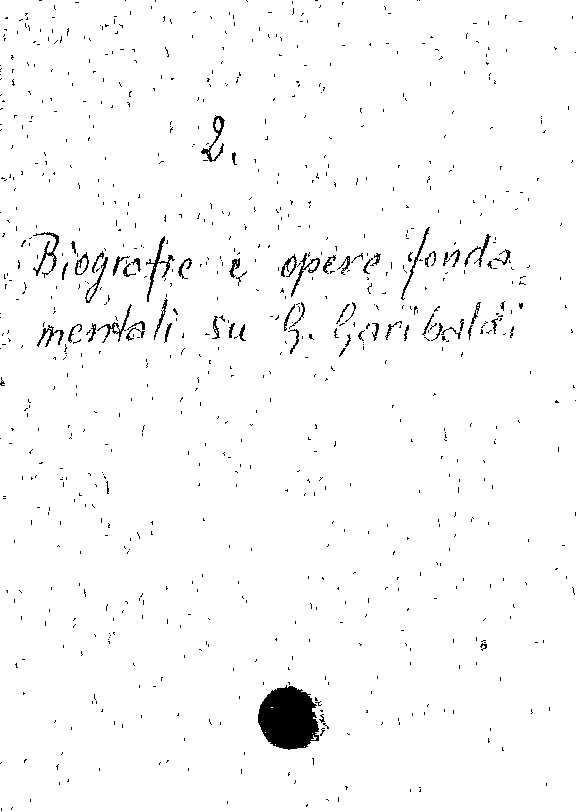 2.
Biografie e opere fonda
mentali su G. Garibaldi